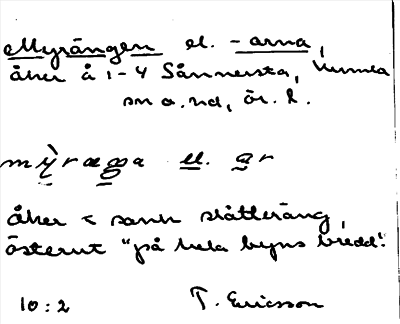 Myrängen el. -arna,
åker å 1-4 Sånnersta, Kumla
sn o. hd, ör. l.
mỳræŋa el. ar
åker < sank slåtteräng,
österut "på hela byns bredd".
10:2 T. Ericsson